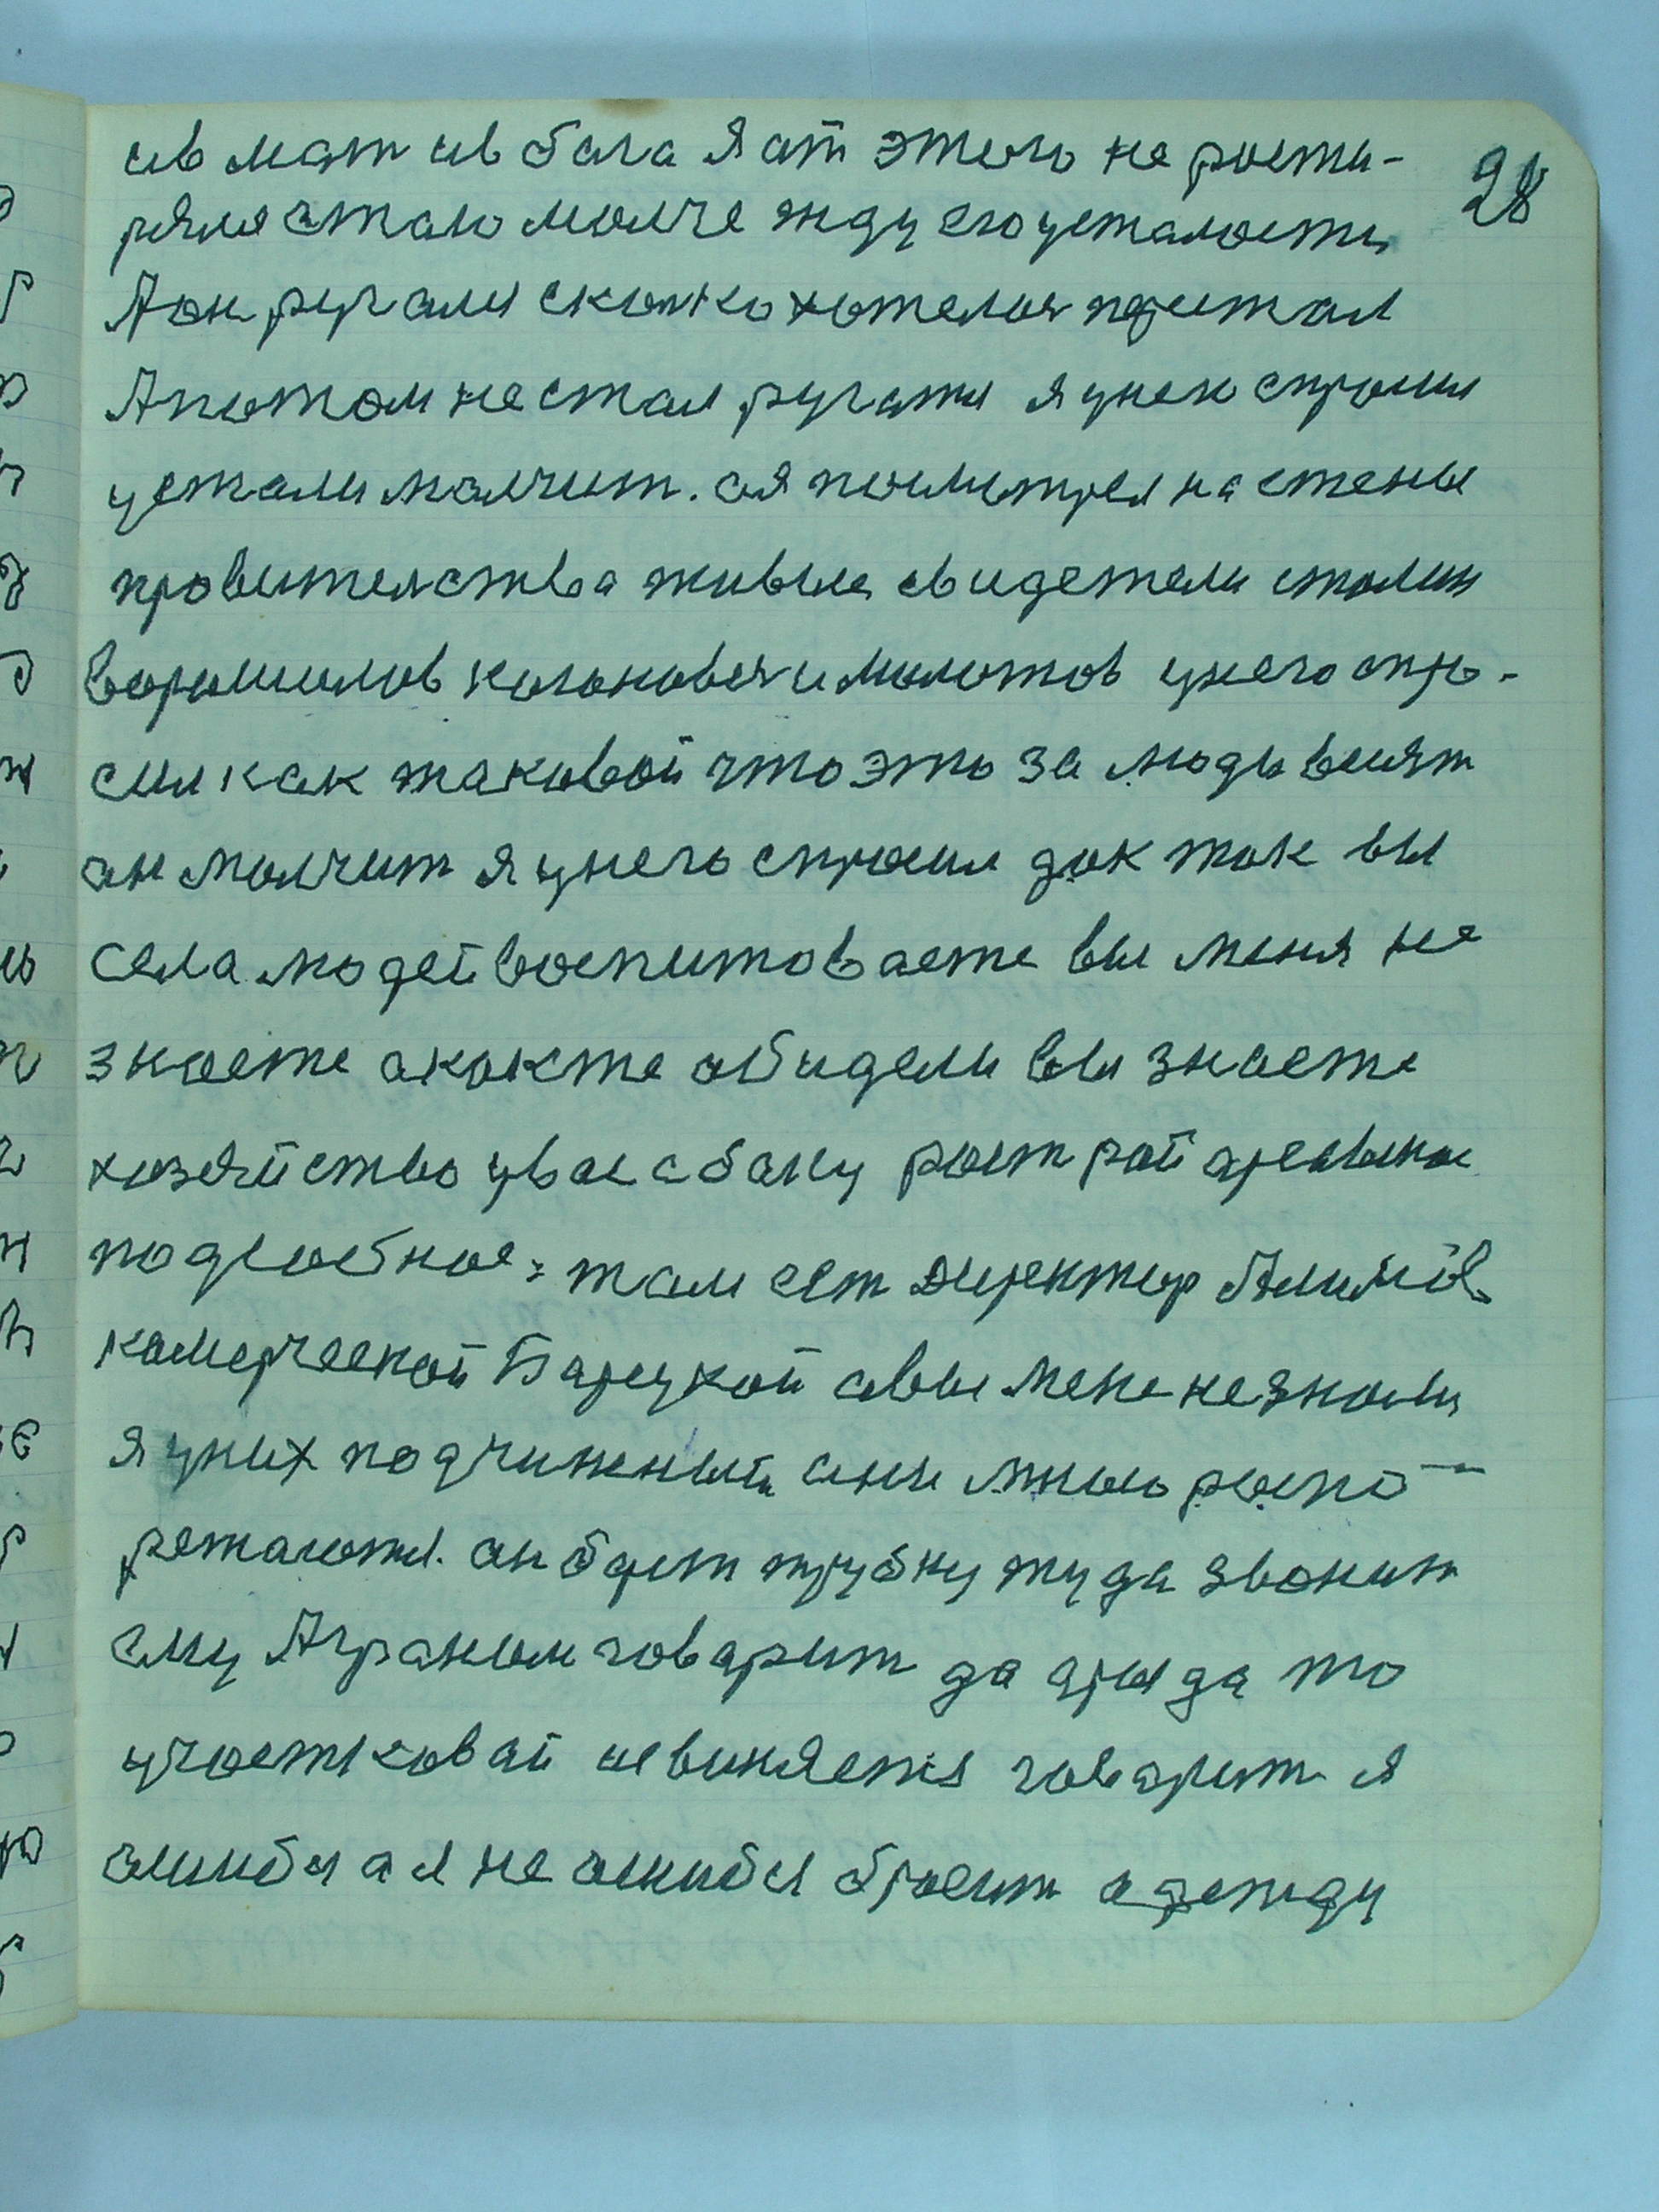 ив мат ив бага Я ат этого не расти-
рялся стаю молче жду его усталости
А он ругался сколко хотелося перистал
А потом не стал ругатся я унего спросил
устали малчит. ая посмотрел на стены
провителства живыя свидетели сталин
варошилов когоновея и молотов унего спро-
сил как таковой что это за люды висят
ан молчит я унего спросил дак так вы
села людей воспитоваете вы меня не
знаете а как те обидели вы знаете
хозяйство увас а баку рост рай
подсобное: там ест директор Алимов
камерческой Барецкой авы мене незнали
я уних подчиненный ани мною распо-
ретаются. ан берет трубку туда звонит
ему Аграном говарит да
участковай извиняется говарит я
ашибся а я не ашибся бросит одежду
28